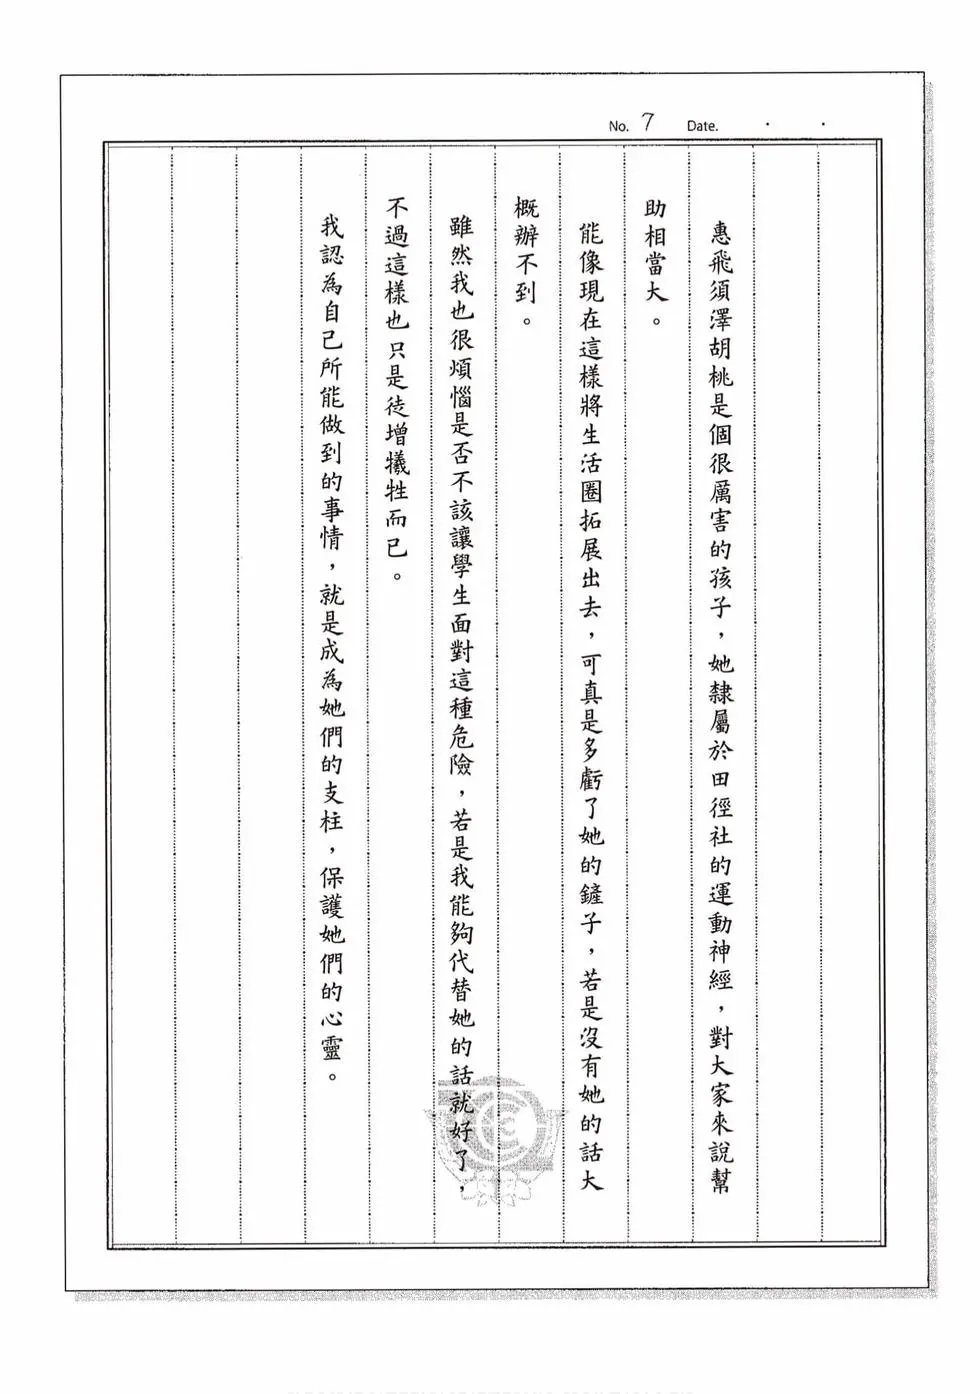 No. 7 Date. ・ ・
惠飛須澤胡桃是個很厲害的孩子，她隸屬於田徑社的運動神經，對大家來說幫
助相當大。
能像現在這樣將生活圈拓展出去，可真是多虧了她的鏟子，若是沒有她的話大
概辦不到。
雖然我也很煩惱是否不該讓學生面對這種危險，若是我能夠代替她的話就好了，
不過這樣也只是徒增犧牲而已。
我認為自己所能做到的事情，就是成為她們的支柱，保護她們的心靈。